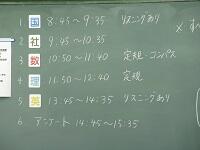 1 国 8:45～9:35 リスニングあり
2 社 9:45～10:35
3 数 10:50～11:40 定規・コンパス
4 理 11:50～12:40 定規
5 英 13:45～14:35 リスニングあり
6 アンケート 14:45～15:35
× すべ